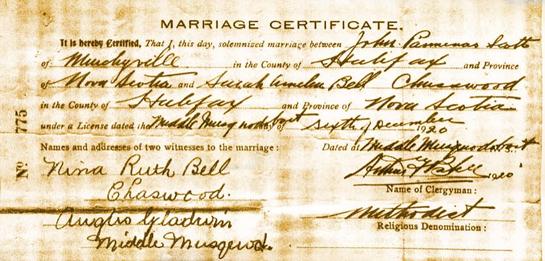 MARRIAGE CERTIFICATE.
It is hereby Certified, That I, this day, solemnized marriage between John
of in the County of Halifax and Province
of Nova Scotia and Sarah Amelia Bell Chaswood
in the County of Halifax and Province of Nova Scotia
under a License dated the Middle Musquodoboit sixth of December 1920
Names and addresses of two witnesses to the marriage: Dated at Middle Musquodoboit, N.S.
Nina Ruth Bell Arthur 1920
Chaswood. Name of Clergyman:
Gladwin Methodist
Middle Musquod. Religious Denomination:
No 775